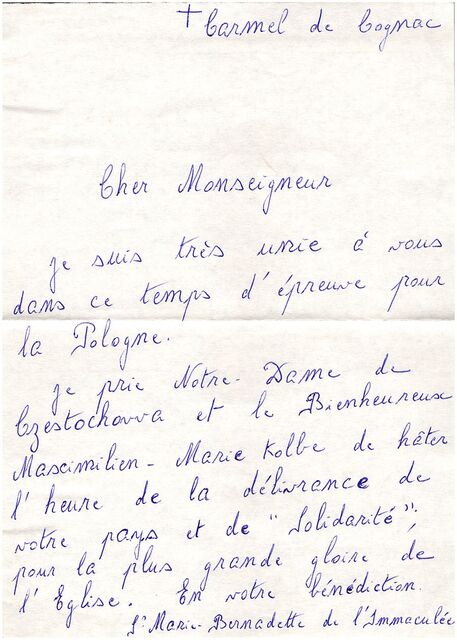 + Carmel de Cognac
Cher Monseigneur
je suis très unie à vous
dans ce temps d'épreuve pour
la Pologne.
je prie Notre-Dame de
Częstochovva et le Bienheureux
Mascimilien-Marie Kolbe de hâter
l'heure de la délivrance de
votre pays et de "Solidarité";
pour la plus grande gloire de
l'Eglise. En votre bénédiction.
Sr Marie-Bernadette de l'Immaculée